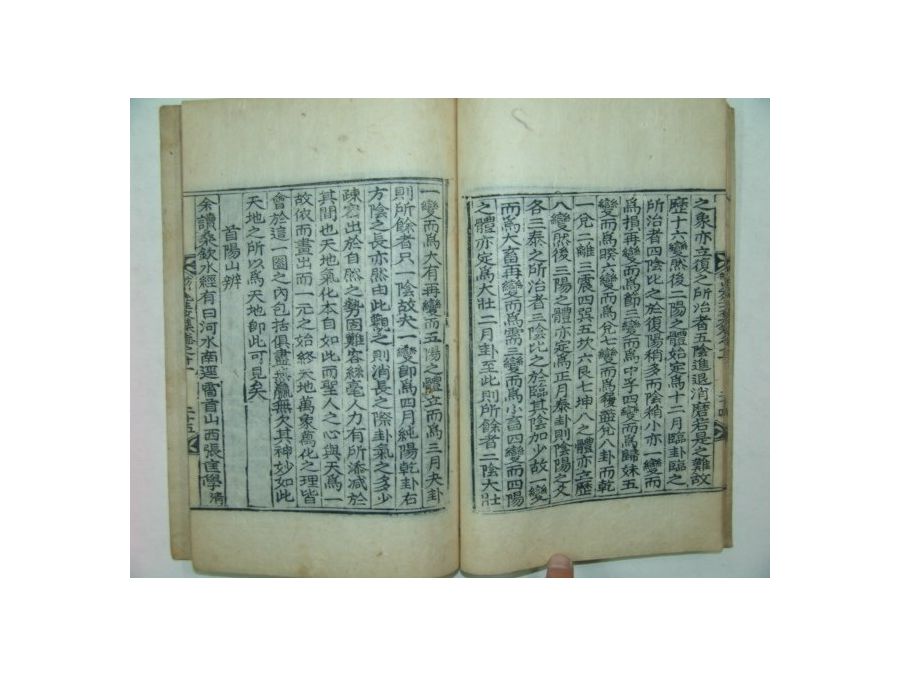 之象亦立復之所治者五陰進退消磨若是之難故
歷十六變然後一陽之體始定爲十二月臨卦臨之
所治者四陰比之於復陽稍多而陰稍小亦一變而
爲損再變而爲節三變而爲中孚四變而爲歸妹五
變而爲睽六變而爲兌七變而爲履盖兌八卦而乾
一兌二離三震四巽五坎六艮七坤八之體亦立歷
八變然後二陽之體亦定爲正月泰卦則陰陽之爻
各三泰之所治者三陰比之於臨其陰加少故一變
而爲大畜再變而爲需三變而爲小畜四變而四陽
之體亦定爲大壯二月卦至此則所餘者二陰大壯
一變而爲大有再變而五陽之體立而爲三月夬卦
則所餘者只一陰故夬一變即爲四月純陽乾卦右
方陰之長亦然由此觀之則消長之際卦氣之多少
疎密出於自然之勢固難容絲毫人力有所添减於
其間也天地氣化本自如此而聖人之心與天爲一
故依而畫出而一元之始終天地萬象萬化之理皆
會於這一圖之內包括俱盡無欠其神妙如此
天地之所以爲天地即此可見矣
首陽山辨
余讀桑欽水經有曰河水南逕雷首山西張匡學
二十五